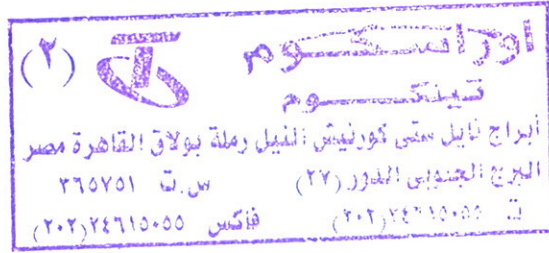 (٢)
اوراسكوم
تيلكوم
أبراج نايل ستى كورنيش النيل رملة بولاق القاهرة مصر
البرج الجنوبى الدور (٢٧) س.ت ٣٦٥٧٥١
ت ٢٤٦١٥٠٥٥(٢٠٢) فاكس ٢٤٦١٥٠٥٥(٢٠٢)